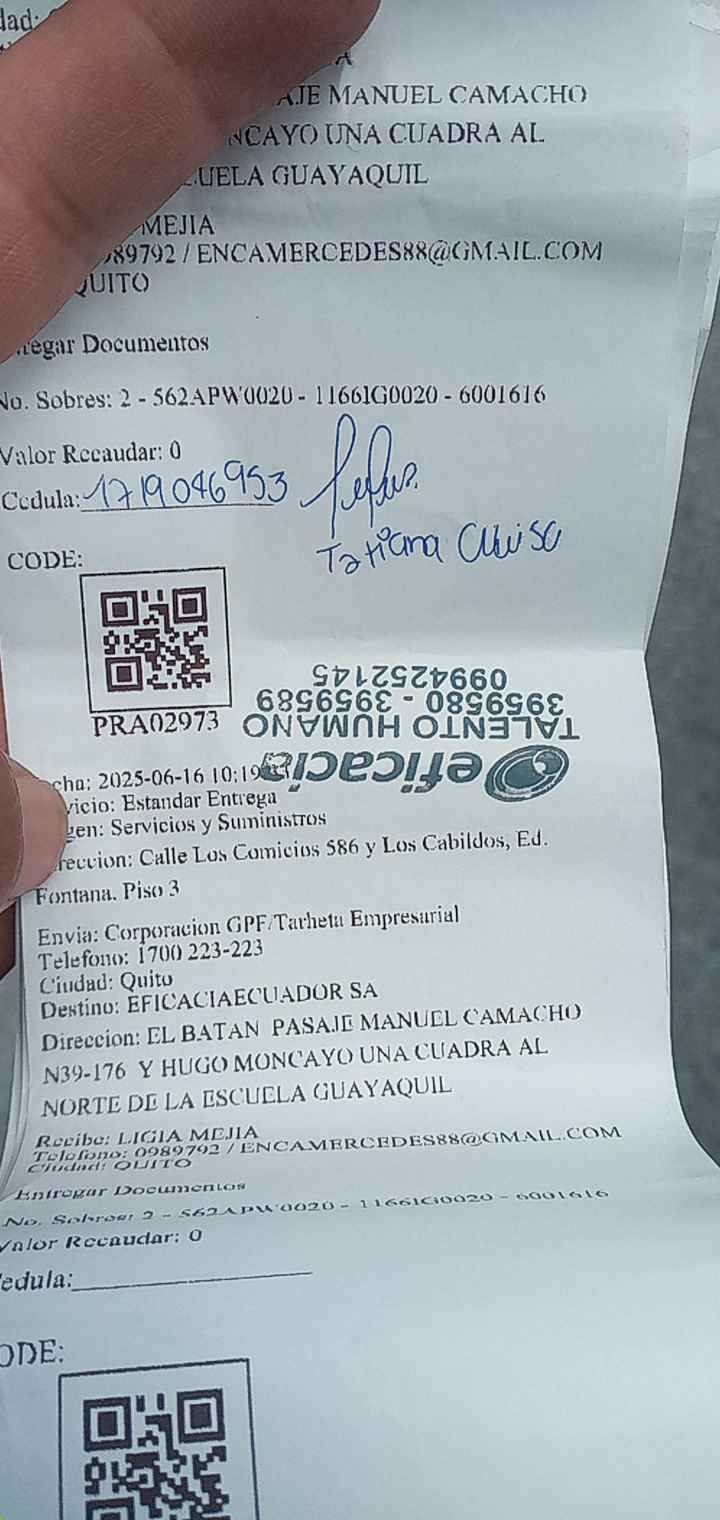 AJE MANUEL CAMACHO
NCAYO UNA CUADRA AL
UELA GUAYAQUIL
MEJIA
989792 / ENCAMERCEDES88@GMAIL.COM
QUITO
regar Documentos
No. Sobres: 2 - 562APW0020 - 11661G0020 - 6001616
Valor Recaudar: 0
Cedula: 1719046953
Tatiana
CODE:
PRA02973
eficacia
TALENTO HUMANO
3959580 - 3959589
0994252145
cha: 2025-06-16 10:19
vicio: Estandar Entrega
gen: Servicios y Suministros
reccion: Calle Los Comicios 586 y Los Cabildos, Ed.
Fontana. Piso 3
Envia: Corporacion GPF/Tarheta Empresarial
Telefono: 1700 223-223
Ciudad: Quito
Destino: EFICACIAECUADOR SA
Direccion: EL BATAN PASAJE MANUEL CAMACHO
N39-176 Y HUGO MONCAYO UNA CUADRA AL
NORTE DE LA ESCUELA GUAYAQUIL
Recibe: LIGIA MEJIA
Telefono: 0989792 / ENCAMERCEDES88@GMAIL.COM
Ciudad: QUITO
Entregar Documentos
No. Sobres: 2 - 562APW0020 - 11661G0020 - 6001616
Valor Recaudar: 0
edula:
ODE: